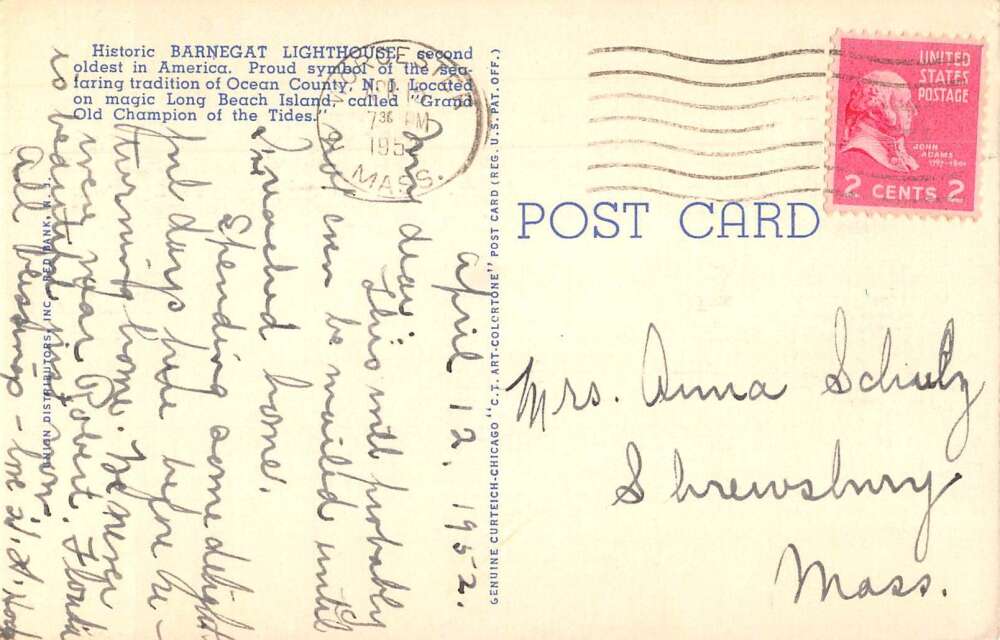 Historic BARNEGAT LIGHTHOUSE, second
oldest in America. Proud symbol of the sea-
faring tradition of Ocean County, N. J. Located
on magic Long Beach Island, called "Grand
Old Champion of the Tides."
7 30 PM
195
MASS.
UNITED
STATES
POSTAGE
JOHN
ADAMS
1797-1801
2 CENTS 2
POST CARD
GENUINE CURTEICH-CHICAGO "C.T. ART-COLORTONE" POST CARD (REG. U.S. PAT. OFF.)
UNION DISTRIBUTORS, INC., RED BANK, N. J.
April 12, 1952.
dear
This will probably
not even be mailed until
I reached home.
Spending some delight-
ful days here before re-
turning home. I've never
were near Robert. Florida
is beautiful
All blessings - love
Mrs. Anna Schulz
Shrewsbury
Mass.